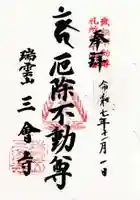 奉拝
令和七年十一月一日
厄除不動尊
瑞雲山 三會寺